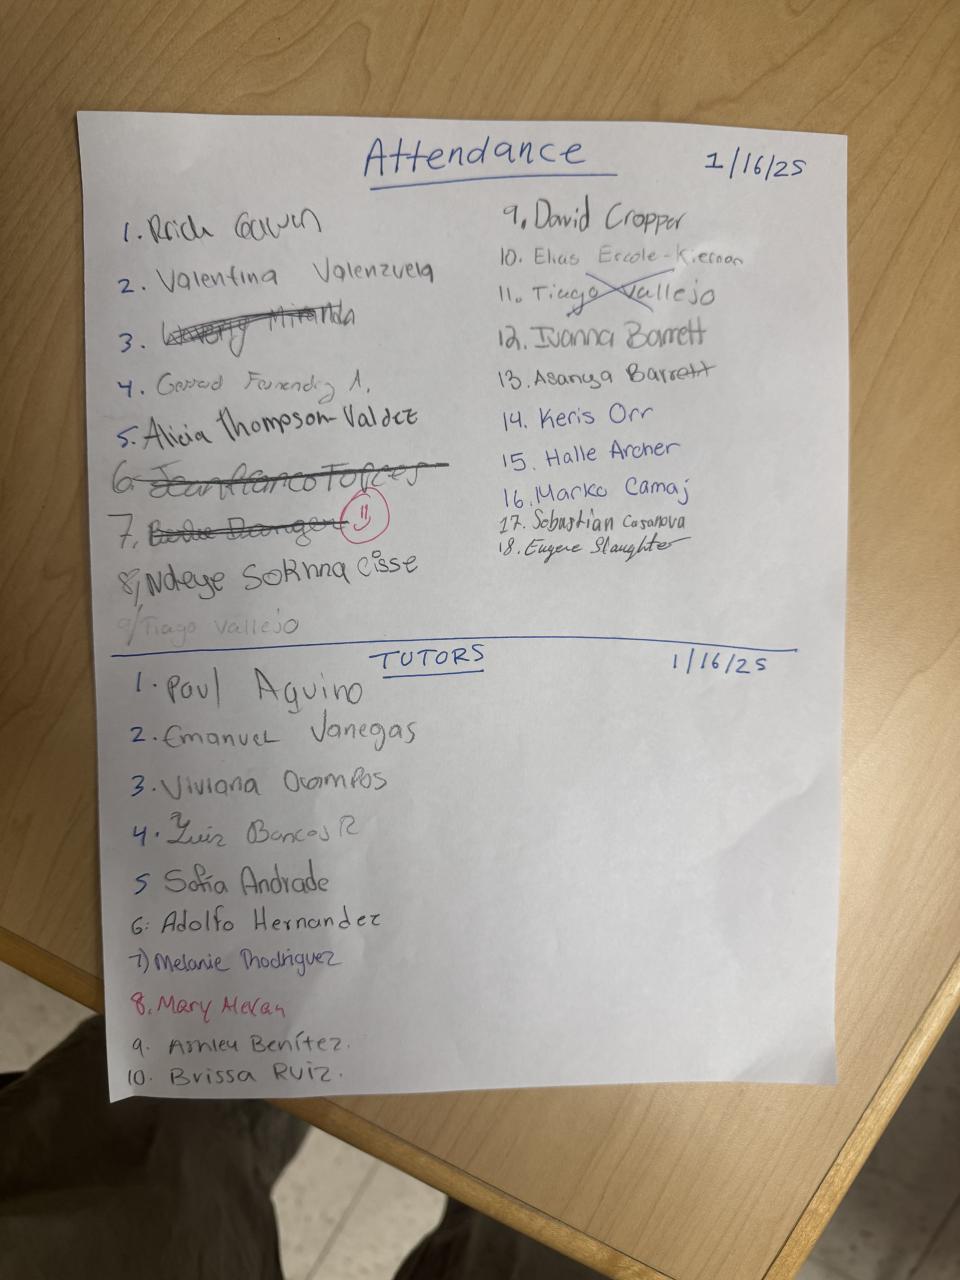 Attendance 1/16/25
1.
2. Valentina Valenzuela
3. Miranda
4.
5. Alicia Thompson-Valdez
6. Jeanfranco Torres
7.
8, Ndeye Sokhna Cisse
9/ Tiago Vallejo
9. David Cropper
10. Elias Ercole-Kiernan
11. Tiago Vallejo
12. Ivanna Barrett
13. Asanya Barrett
14. Keris Orr
15. Halle Archer
16. Marko Camaj
17. Sebastian Casanova
18. Eugene Slaughter
TUTORS 1/16/25
1. Paul Aquino
2. Emanuel Vanegas
3. Viviana Ocampos
4. Luiz R
5 Sofia Andrade
6. Adolfo Hernandez
7) Melanie Rhodriguez
8. Mary
9. Ashley Benítez.
10. Brissa Ruiz.